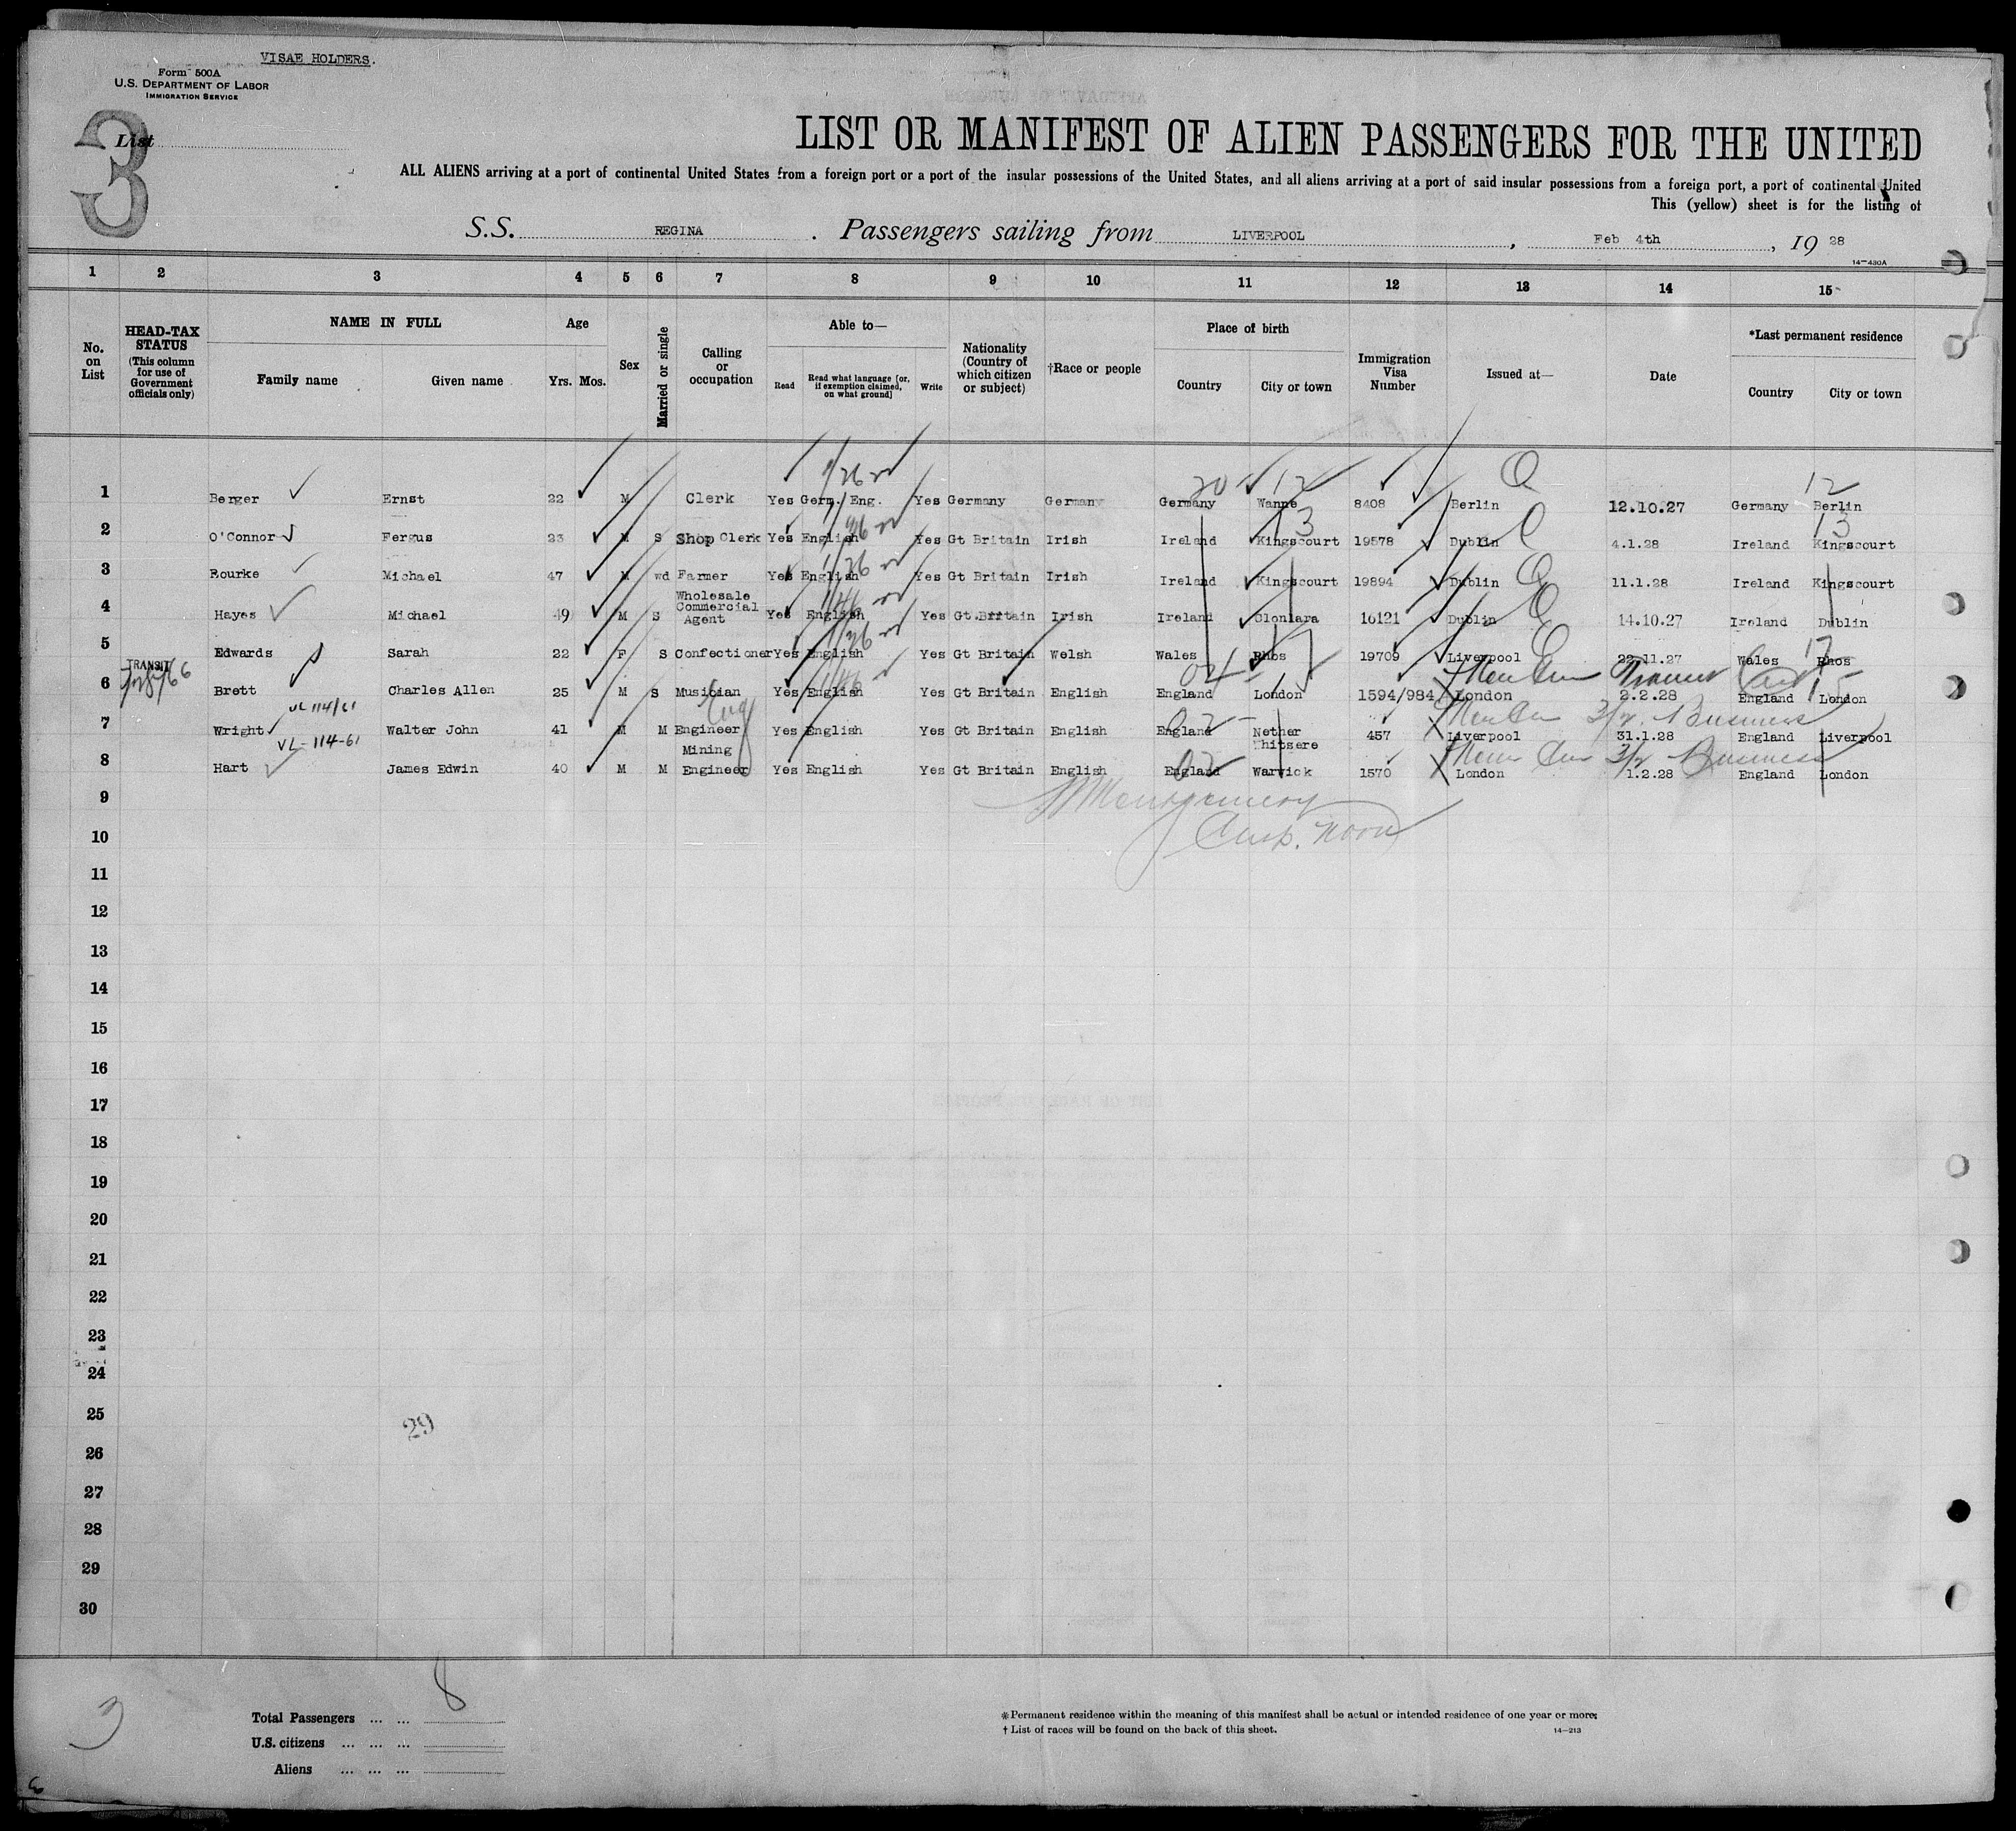 VISAE HOLDERS.
Form 500A
U.S. DEPARTMENT OF LABOR
IMMIGRATION SERVICE
3
List
LIST OR MANIFEST OF ALIEN PASSENGERS FOR THE UNITED
ALL ALIENS arriving at a port of continental United States from a foreign port or a port of the insular possessions of the United States, and all aliens arriving at a port of said insular possessions from a foreign port, a port of continental United
This (yellow) sheet is for the listing of
S.S. REGINA . Passengers sailing from LIVERPOOL , Feb 4th , 19 28
14—430A
1 2 3 4 5 6 7 8 9 10 11 12 13 14 15
No. on List
HEAD-TAX STATUS (This column for use of Government officials only)
NAME IN FULL
Family name Given name
Age
Yrs. Mos.
Sex
Married or single
Calling or occupation
Able to—
Read Read what language [or, if exemption claimed, on what ground] Write
Nationality (Country of which citizen or subject)
†Race or people
Place of birth
Country City or town
Immigration Visa Number
Issued at—
Date
*Last permanent residence
Country City or town
1/26 20 12 12
1 Berger Ernst 22 M Clerk Yes Germ. Eng. Yes Germany Germany Germany Wanne 8408 Berlin 12.10.27 Germany Berlin
26 13 13
2 O'Connor Fergus 23 M S Shop Clerk Yes English Yes Gt Britain Irish Ireland Kingscourt 19578 Dublin 4.1.28 Ireland Kingscourt
26
3 Rourke Michael 47 M wd Farmer Yes English Yes Gt Britain Irish Ireland Kingscourt 19894 Dublin 11.1.28 Ireland Kingscourt
4 Hayes Michael 49 M S Wholesale Commercial Agent Yes English Yes Gt.Britain Irish Ireland Clonlara 16121 Dublin 14.10.27 Ireland Dublin
26 17 17
5 Edwards Sarah 22 F S Confectioner Yes English Yes Gt Britain Welsh Wales Rhos 19709 Liverpool 22.11.27 Wales Rhos
TRANSIT
6 Brett Charles Allen 25 M S Musician Yes English Yes Gt Britain English England London 1594/984 London 2.2.28 England London
VL 114/61 Eng 02 3/2. Business
7 Wright Walter John 41 M M Engineer Yes English Yes Gt Britain English England Nether Whitsere 457 Liverpool 31.1.28 England Liverpool
VL-114-61 02 3/2 Business
8 Hart James Edwin 40 M M Mining Engineer Yes English Yes Gt Britain English England Warwick 1570 London 1.2.28 England London
9
Montgomery
10
Insp.
11
12
13
14
15
16
17
18
19
20
21
22
23
24
25
29
26
27
28
29
30
3
8
Total Passengers ... ...
U.S. citizens ... ... ...
Aliens ... ... ...
*Permanent residence within the meaning of this manifest shall be actual or intended residence of one year or more.
†List of races will be found on the back of this sheet.
14—213